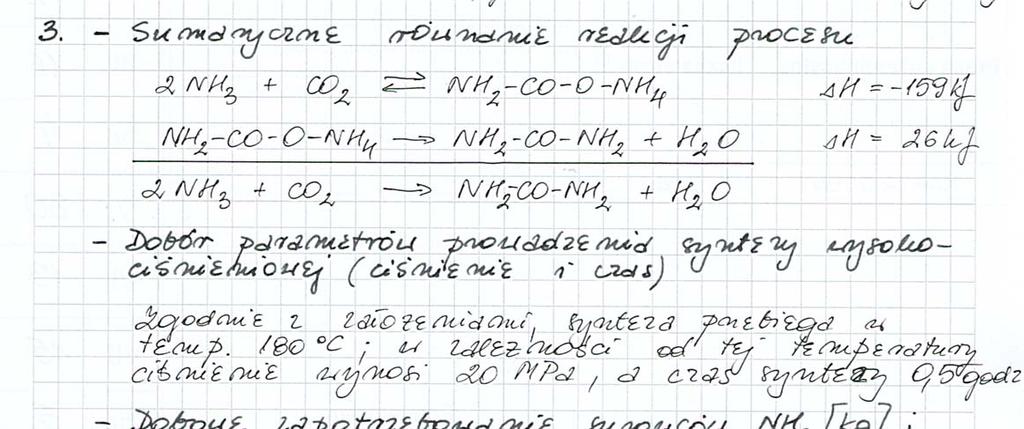 3. - Sumaryczne równanie reakcji procesu
2 NH3 + CO2 ⇌ NH2-CO-O-NH4 ΔH = -159 kJ
NH2-CO-O-NH4 → NH2-CO-NH2 + H2O ΔH = 26 kJ
2 NH3 + CO2 → NH2-CO-NH2 + H2O
- Dobór parametrów prowadzenia syntezy wysoko-
ciśnieniowej (ciśnienie i czas)
Zgodnie z założeniami, synteza przebiega w
temp. 180 °C; w zależności od tej temperatury
ciśnienie wynosi 20 MPa, a czas syntezy 0,5 godz
- Dobowe zapotrzebowanie surowców NH [kg] :